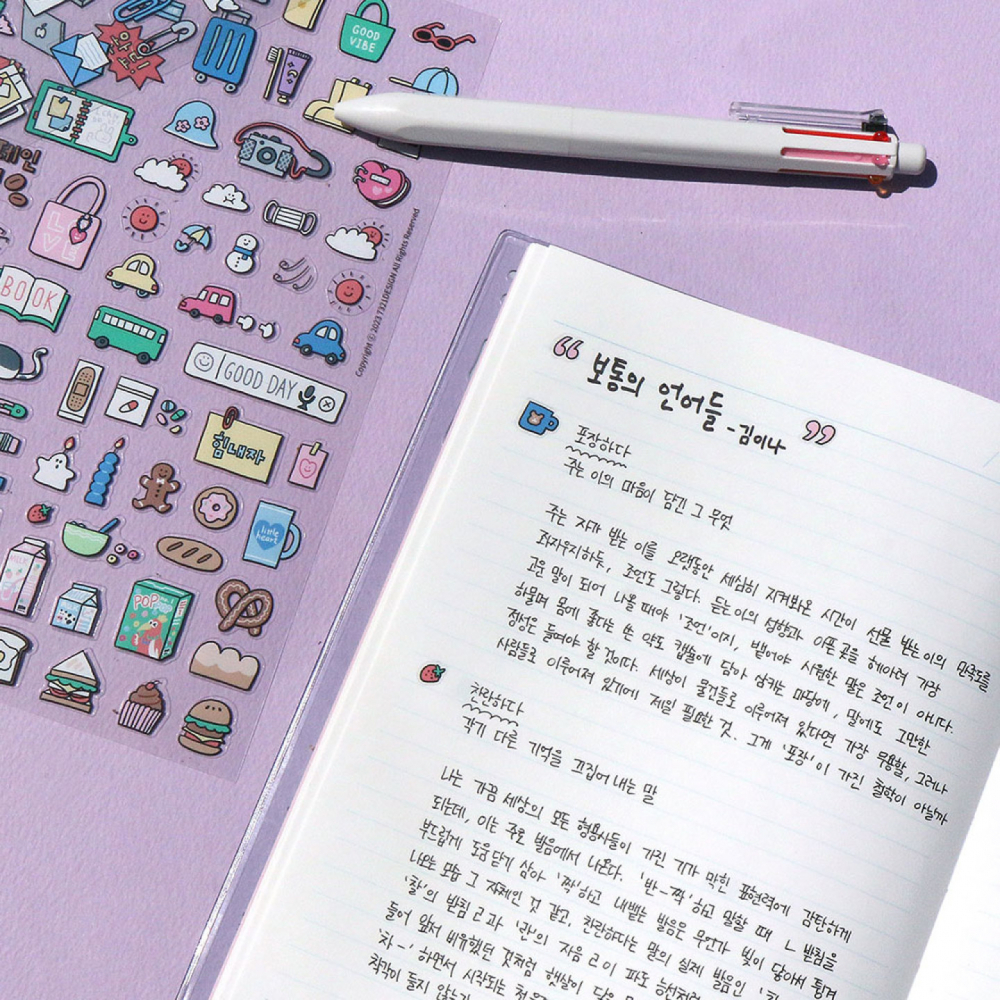 GOOD
VIBE
LOVE
BOOK
GOOD DAY
힘내자
little
heart
POP
Copyright ⓒ 2023 7321DESIGN All Rights Reserved
“ 보통의 언어들 - 김이나 ”
포장하다
주는 이의 마음이 담긴 그 무엇
주는 자가 받는 이를 오랫동안 세심히 지켜봐온 시간이 선물 받는 이의 만족도를
좌지우지하듯, 조언도 그렇다. 듣는 이의 성향과 아픈 곳을 헤아려 가장
고운 말이 되어 나올 때야 '조언'이지, 뱉어야 시원한 말은 조언이 아니다.
하물며 몸에 좋다는 쓴 약도 캡슐에 담아 삼키는 마당에, 말에도 그만한
정성은 들여야 할 것이다. 세상이 물건들로 이루어져 있다면 가장 무용할, 그러나
사람들로 이루어져 있기에 제일 필요한 것. 그게 '포장'이 가진 철학이 아닐까
찬란하다
각기 다른 기억을 끄집어 내는 말
나는 가끔 세상의 모든 형용사들이 가진 기가 막힌 표현력에 감탄하게
되는데, 이는 주로 발음에서 나온다. '반-짝'하고 말할 때 ㄴ 받침을
부드럽게 도움닫기 삼아 '짝'하고 내뱉는 발음은 무언가 빛이 닿아서 튕겨
나오는 모습 그 자체인 것 같고, 찬란하다는 말의 실제 발음인
'찰'의 받침 ㄹ과 '란'의 자음 ㄹ이 파도 능선처럼
들어 앞서 비유했던 것처럼 햇살이 담
'차-' 하면서 시작되는 첫
착각이 들지 않는가